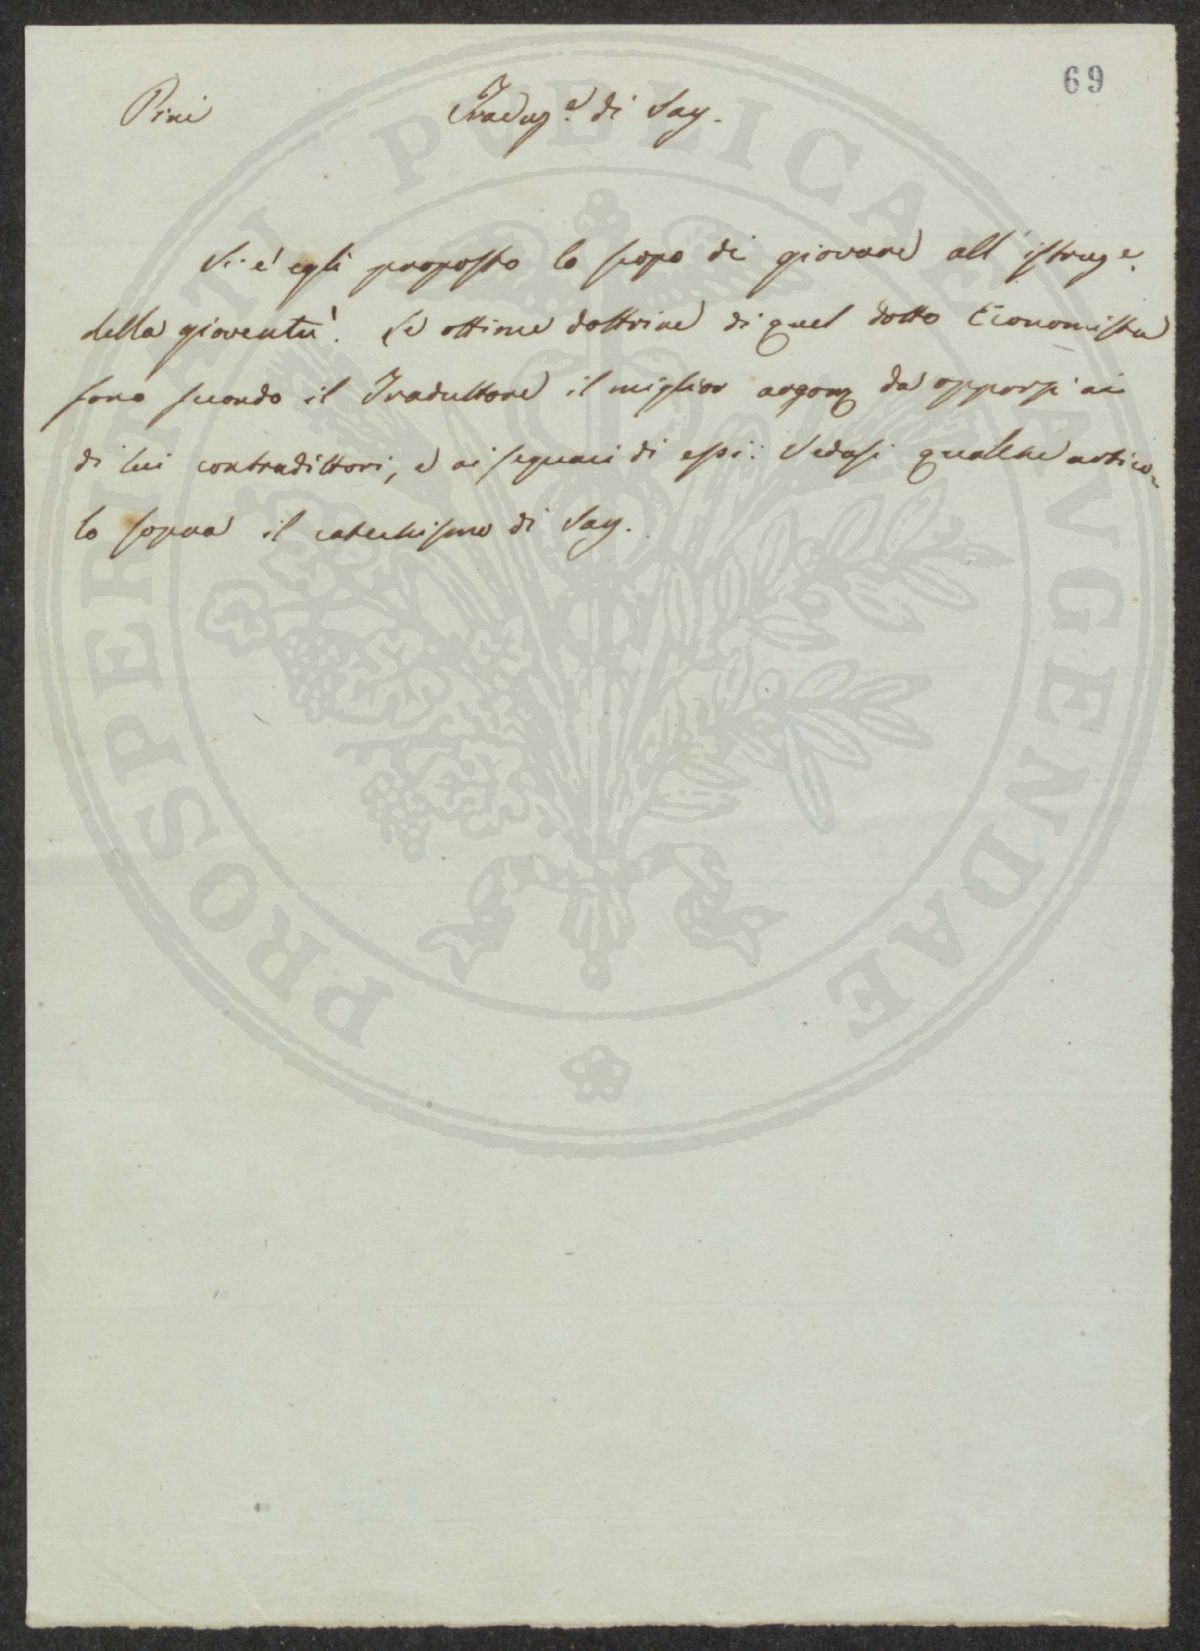 69
Pini Traduz.e di Say.
Si è egli proposto lo scopo di giovare all'istruz.e
della gioventù. Le ottime dottrine di quel dotto Economista
sono secondo il Traduttore il miglior argom da opporsi ai
di lui contradittori, e ai seguaci di essi. Vedasi qualche artico-
lo sopra il catechismo di Say.
PROSPERITATI PUBLICAE AUGENDAE